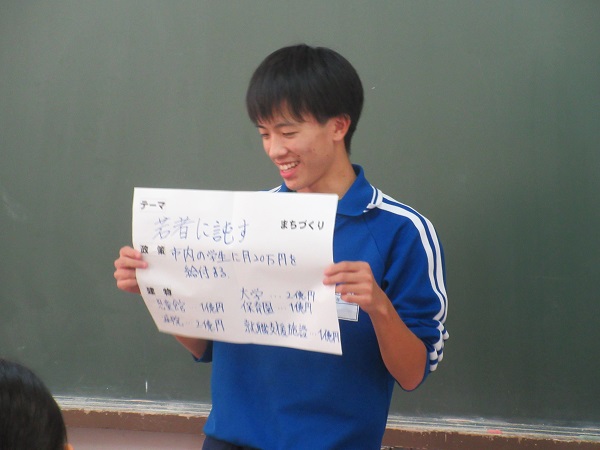 テーマ
若者に託す まちづくり
政策 市内の学生に月20万円を
給付する
建物 大学…2億円
児童館 1億円 保育園…1億円
高校…2億円 就職支援施設…1億円